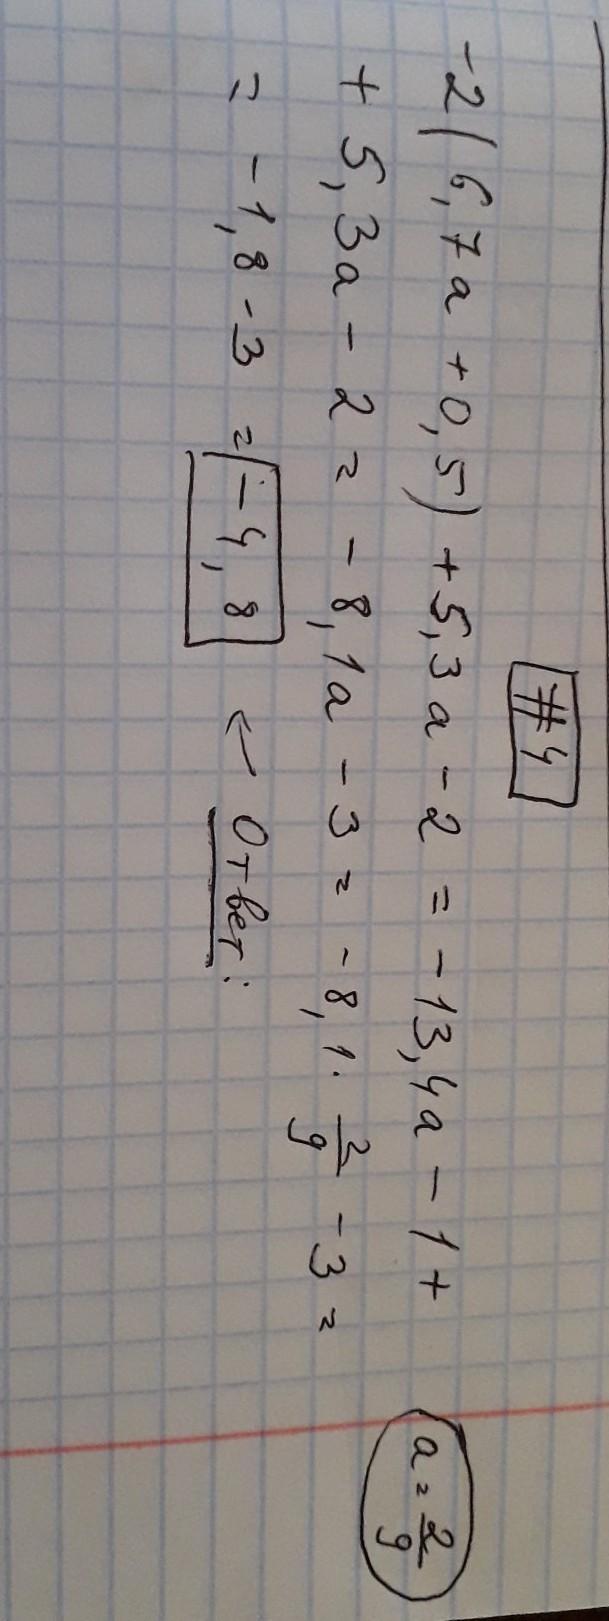 #4
-2(6,7a + 0,5) + 5,3a - 2 = -13,4a - 1 +
a = 2/9
+ 5,3a - 2 = -8,1a - 3 = -8,1 · 2/9 - 3 =
= -1,8 - 3 = -4,8 ← Ответ: